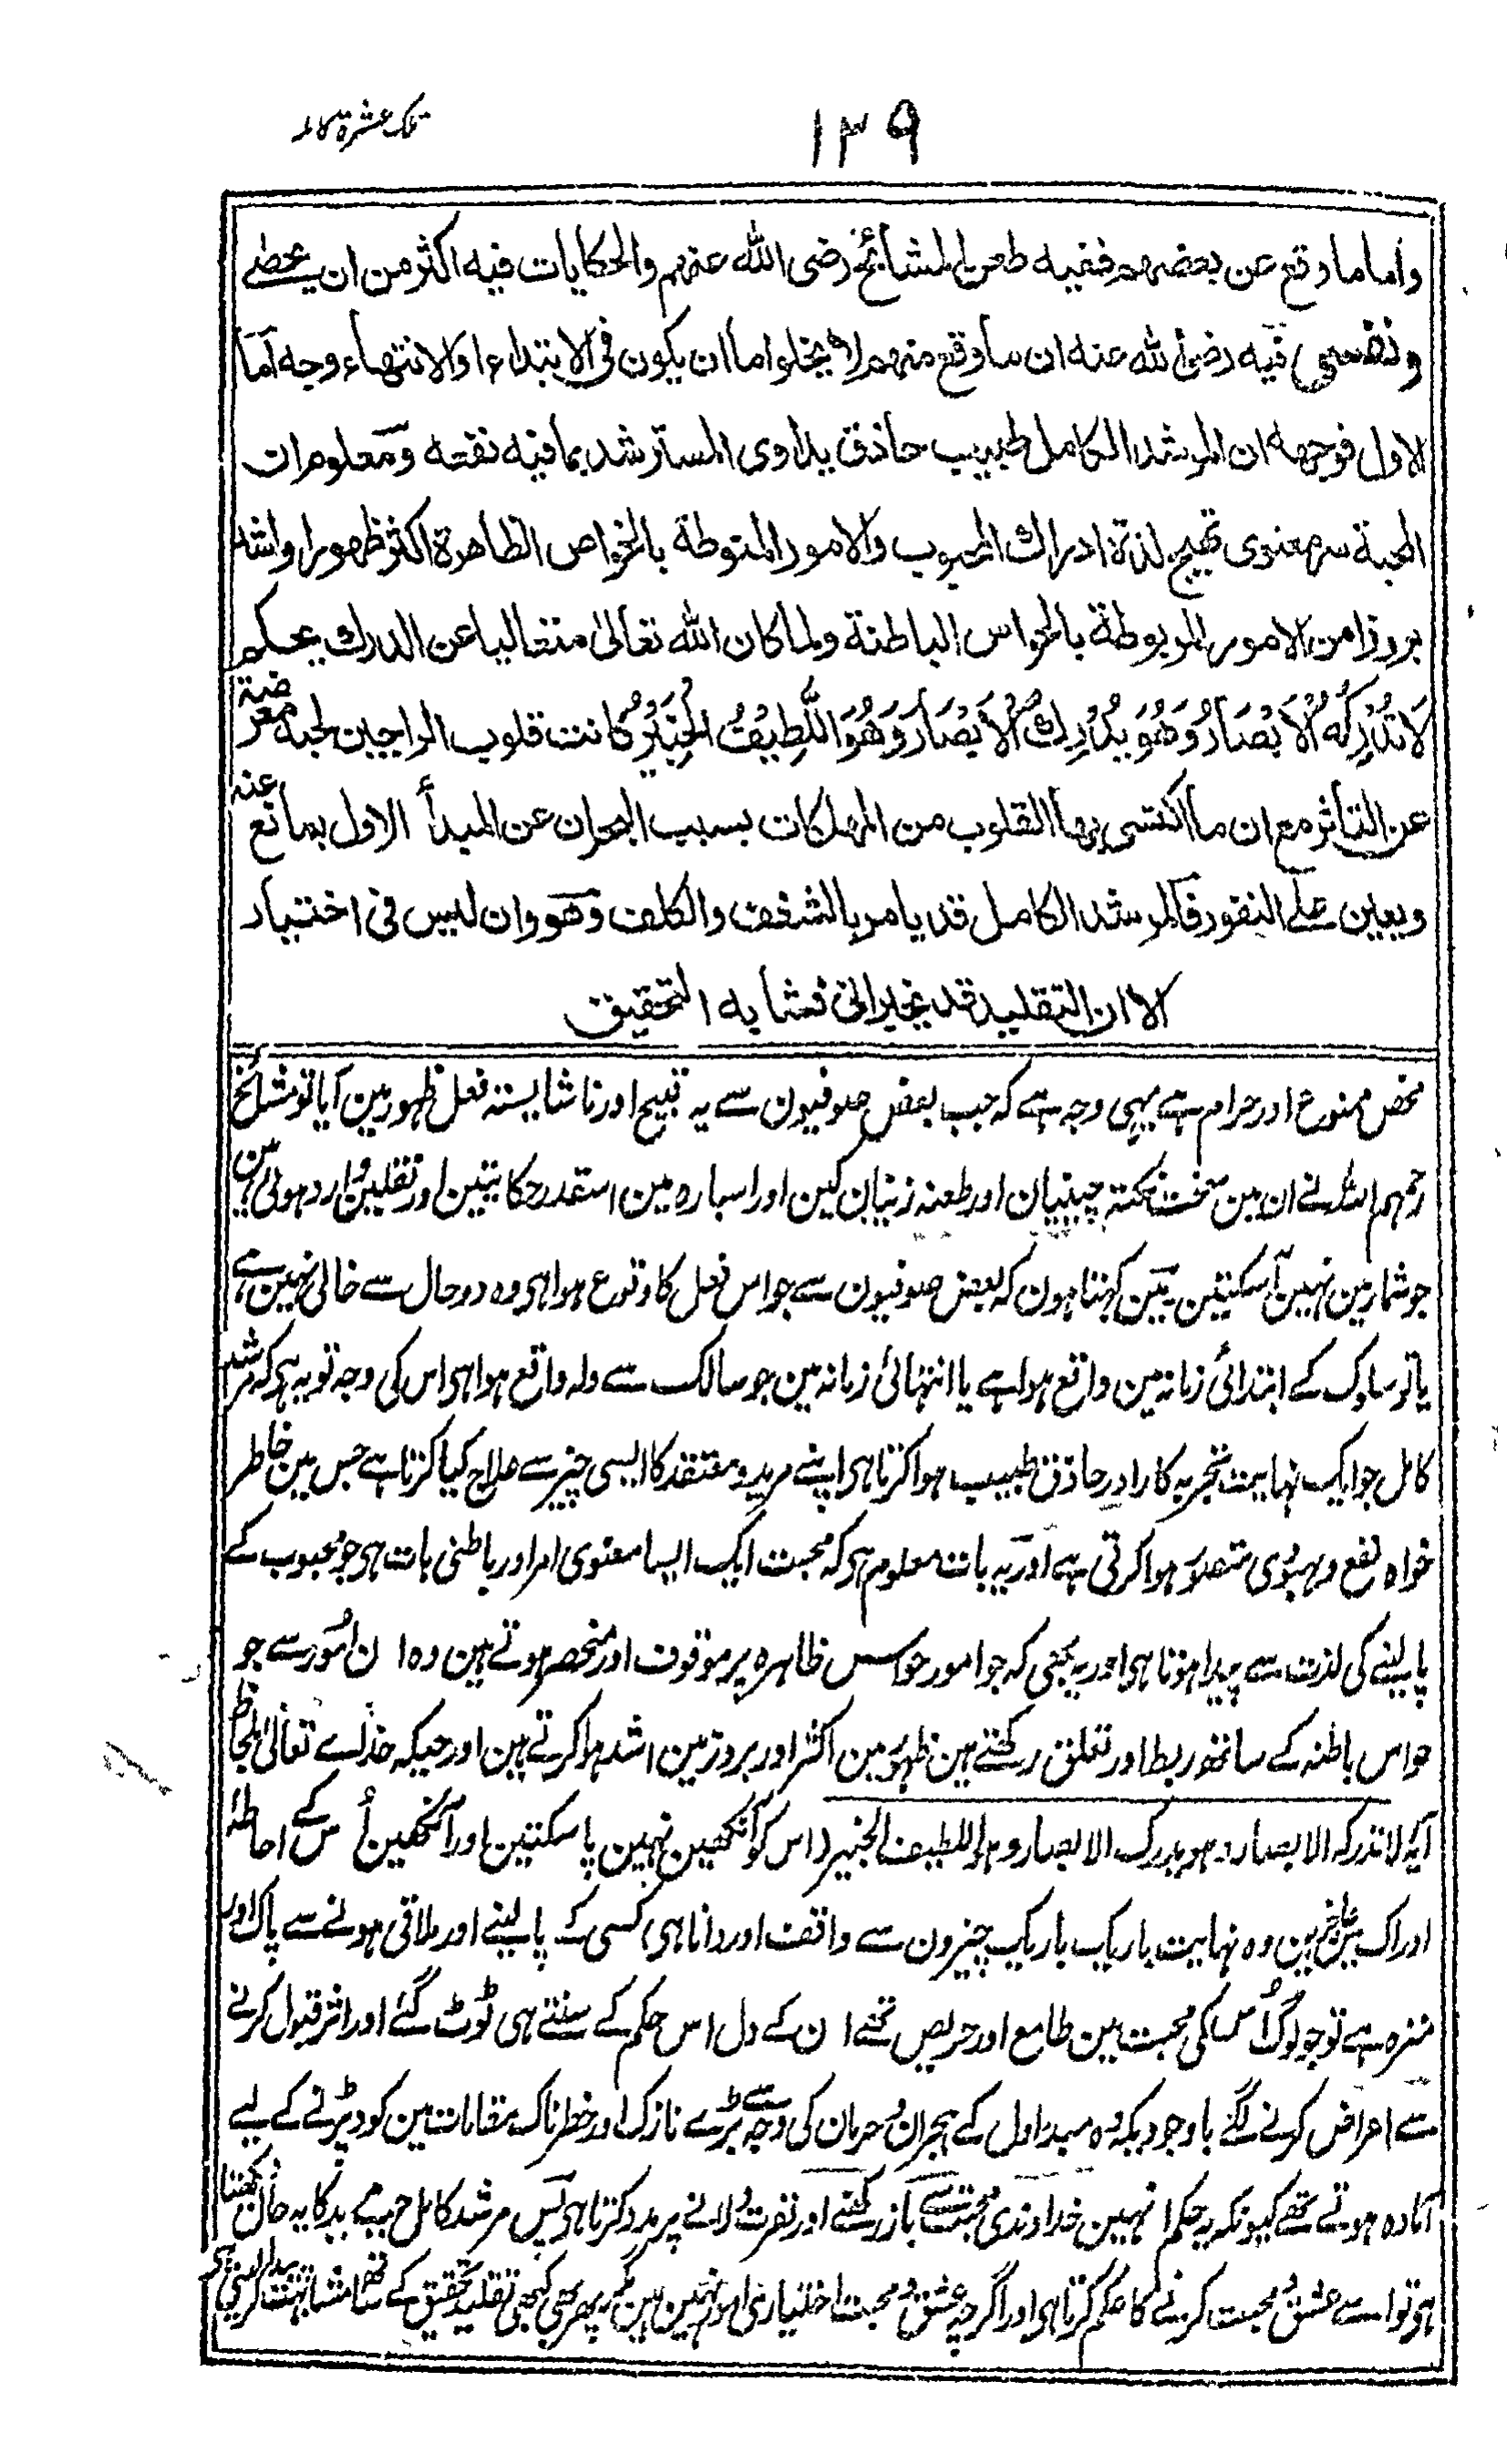 ۱۳۹
تلک عشرة کاملہ
واما ما وقع عن بعضهم ففيه طعن المشائخ رضى الله عنهم والحكايات فيه اكثر من ان يحصى
ونفسى فيه رضى الله عنه ان ما وقع منهم لا يخلو اما ان يكون فى الابتداء او الانتهاء وجه اما
الاول فوجهه ان المرشد الكامل طبيب حاذق يداوى المسترشد بما فيه نفعه ومعلوم ان
المحبة سر معنوى تهيج لذة ادراك المحبوب والامور المنوطة بالحواس الظاهرة اكثر ظهورا واشد
بروزا من الامور المربوطة بالحواس الباطنة ولما كان الله تعالى متعاليا عن الدرك بحكم
لَا تُدْرِكُهُ الْاَبْصَارُ وَهُوَ يُدْرِكُ الْاَبْصَارَ وَهُوَ اللَّطِيْفُ الْخَبِيْرُ كانت قلوب الراجين لحبه معرضة
عن التأثر مع ان ما اكتسى بها القلوب من المهلكات بسبب الهجران عن المبدأ الاول يمانع عنه
ويعين على النفور فالمرشد الكامل قد يامر بالشغف والكلف وهو وان ليس فى اختيار
الا ان التقليد قد ينجر الى تشابه التحقيق
محض ممنوع اور حرام ہے یہی وجہ ہے کہ جب بعض صوفیون سے یہ قبیح اور ناشایستہ فعل ظہور مین آیا تو مشائخ
رحمہم اللہ نے ان مین سخت نکتہ چینیان اور طعنہ زنیان کین اور اسبارہ مین اسقدر حکایتین اور نقلین وارد ہوئی ہین
جو شمار مین نہین آسکتین مین کہتا ہون کہ بعض صوفیون سے جو اس فعل کا وقوع ہوا ہی وہ دو حال سے خالی نہین ہے
یا تو سلوک کے ابتدائی زمانہ مین واقع ہوا ہے یا انتہائی زمانہ مین جو سالک سے واقع ہوا ہی اس کی وجہ تو یہ ہی کہ مرشد
کامل جو ایک نہایت تجربہ کار اور حاذق طبیب ہوا کرتا ہی اپنے مرید و معتقد کا ایسی چیز سے علاج کیا کرتا ہے جس مین خاطر
خواہ نفع و بہبودی متصور ہوا کرتی ہے اور یہ بات معلوم ہی کہ محبت ایک ایسا معنوی امر اور باطنی بات ہی جو محبوب کے
پا لینے کی لذت سے پیدا ہوتا ہی اور یہ بھی کہ جو امور حواس ظاہرہ پر موقوف اور منحصر ہوتے ہین وہ ان امور سے جو
حواس باطنہ کے ساتھ ربط اور تعلق رکھتے ہین ظہور مین اکثر اور بروز مین اشد ہوا کرتے ہین اور جبکہ خداے تعالیٰ بلحاظ
آیۂ لا تدرکہ الابصار وہو یدرک الابصار وہو اللطیف الخبیر (اس کو آنکھین نہین پا سکتین اور آنکھین اُس کے احاطۂ
ادراک مین ہین وہ نہایت باریک باریک چیزون سے واقف اور دانا ہی) کسی کے پا لینے اور ملاقی ہونے سے پاک اور
منزہ ہے تو جو لوگ اُس کی محبت مین طامع اور حریص تھے ان کے دل اس حکم کے سنتے ہی ٹوٹ گئے اور اثر قبول کرنے
سے اعراض کرنے لگے باوجودیکہ وہ مبدا اول کے ہجران و حرمان کی وجہ سے بڑے نازک اور خطرناک مقامات مین کود پڑنے کے لیے
آمادہ ہوتے تھے کیونکہ یہ حکم انہین خداوندی محبت سے باز رکھنے اور نفرت دلانے پر مدد کرتا ہی پس مرشد کامل جب مرید کا یہ حال دیکھتا
ہی تو اسے عشق و محبت کرنے کا حکم کرتا ہی اور اگرچہ عشق و محبت اختیاری امور نہین ہین مگر پھر بھی کبھی تقلید تحقیق کے ساتھ مشابہت پیدا کر لیتی ہی